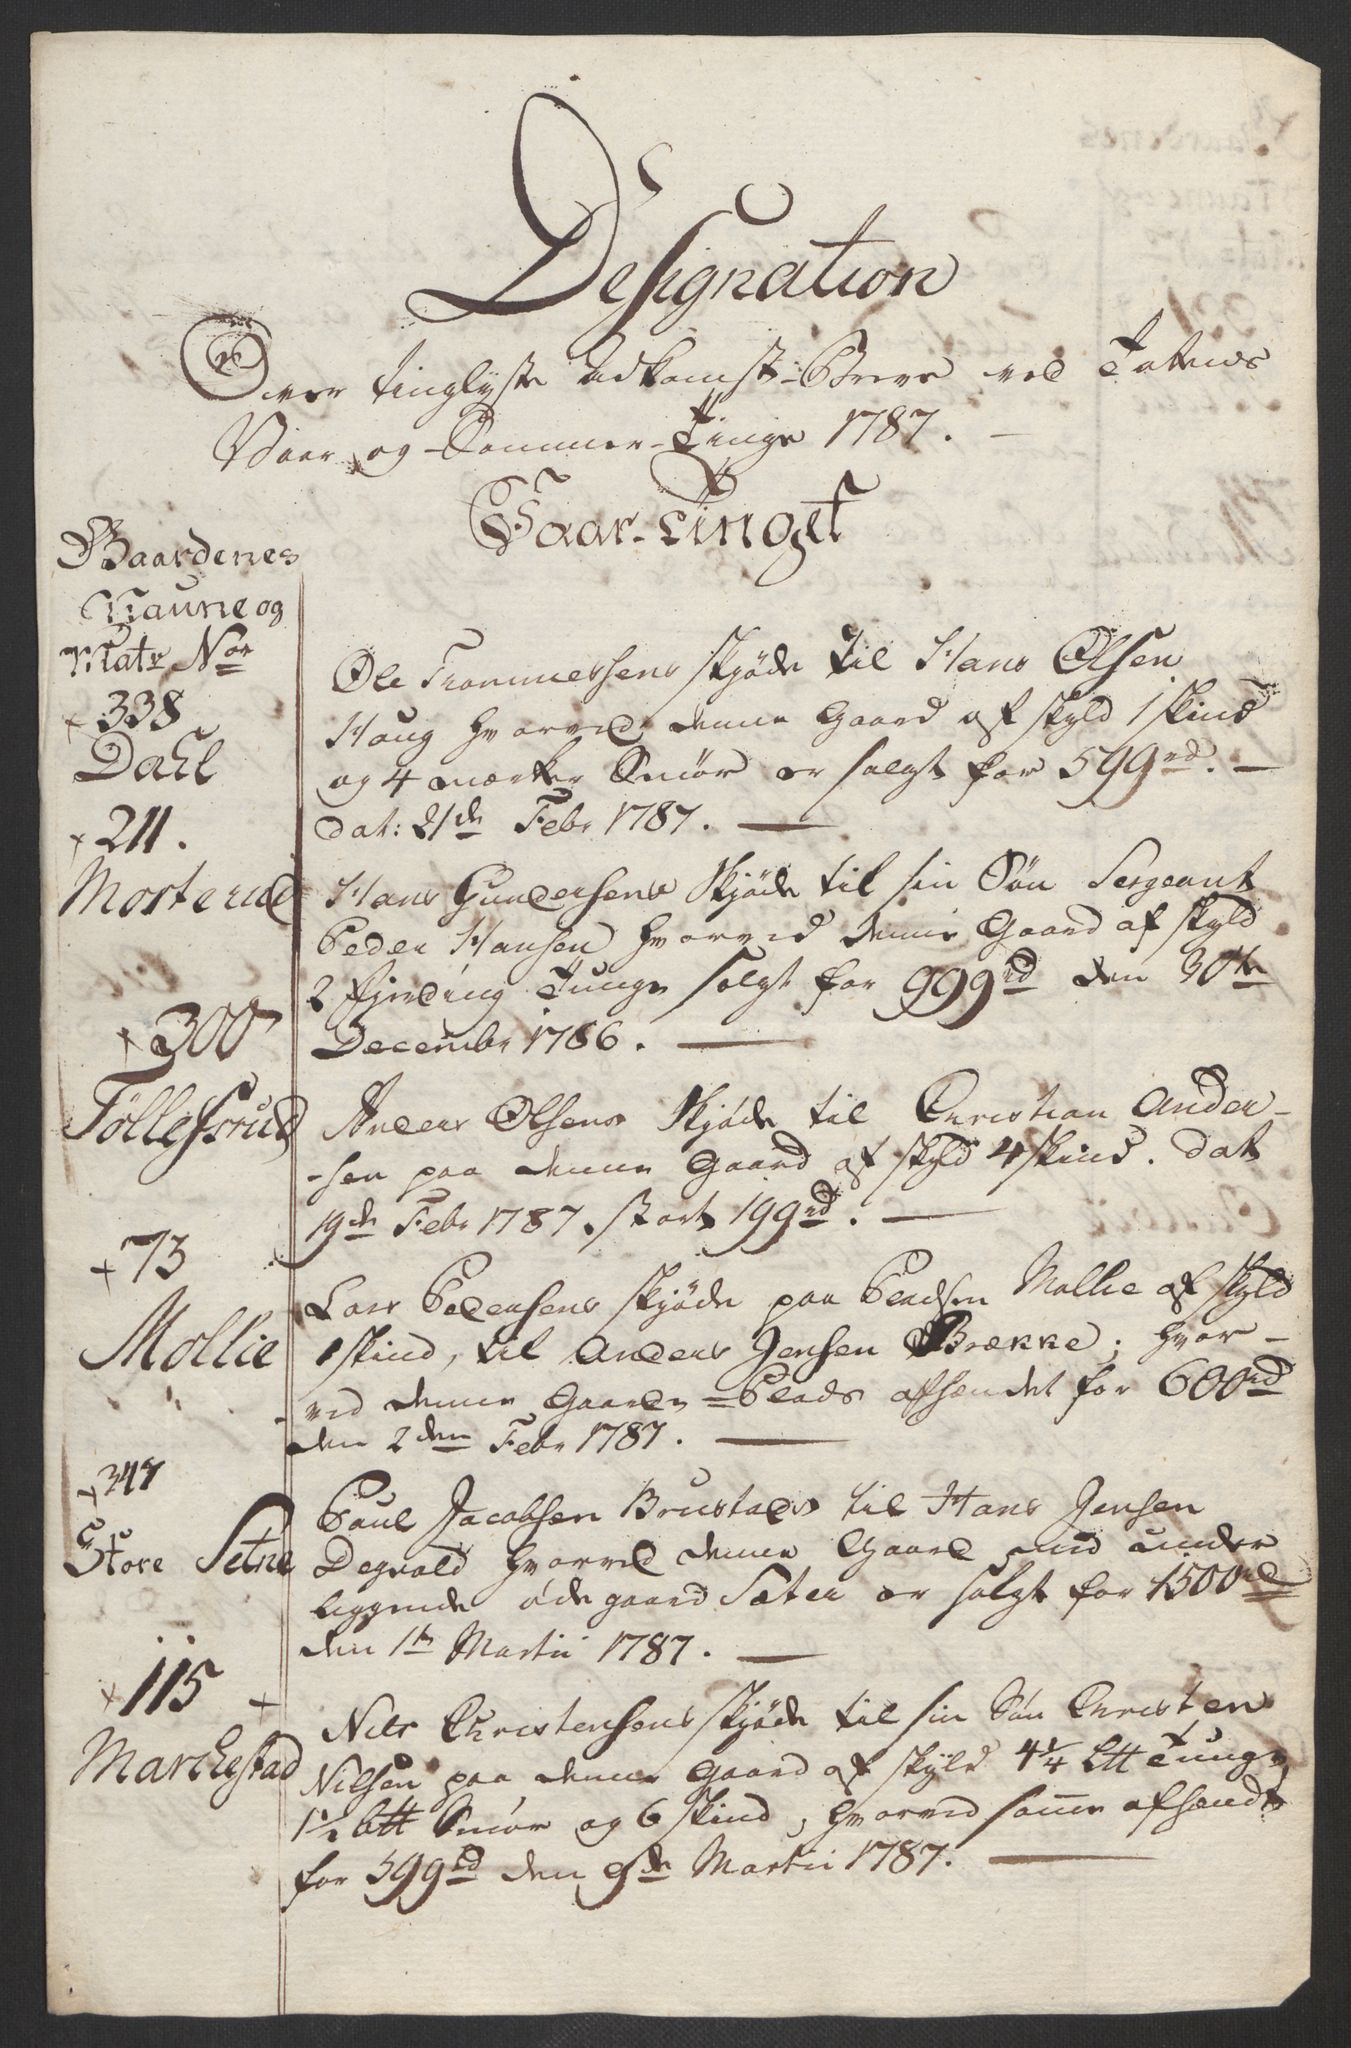 Designation
Over tinglyste Adkomst-Breve ved Totens
Vaar og Sommer-Tinge 1787. –
Vaar-Tinget
Gaardenes
Naune og
Matr Nor
+338
Dahl
Ole Frommessens Skjøde til Hans Olsen
Haug hvorved denne Gaard af skyld 1 skind
og 4 mærker Smør er solgt for 599 rd. –
dat: 21de Febr 1787. –
+211.
Morterud
Hans Gundersens Skjøde til sin Søn Sergeant
Peder Hansen hvorved denne Gaard af skyld
2 fjerding Tunge solgt for 999 rd den 30te
December 1786. –
+300
Tøllefsrud
Anders Olsens Skjøde til Christian Ander-
-sen paa denne Gaard af skyld 4 skind. dat
19de Febr 1787. stort 199 rd. –
+73
Mollie
Lars Pedersens skjøde paa Pladsen Mollie af skyld
1 skind, til Anders Jensen Brække; hvor-
ved denne Gaard = Plads afhændet for 600 rd
den 2den Febr 1787. –
+347
Store Setne
Poul Jacobsen Brustads til Hans Jensen
Degvold hvorved denne Gaard med under
liggende øde gaard Sæter er solgt for 1500 rd
den 1te Martii 1787. –
+115 +
Marchestad
Nils Christensens skjøde til sin Søn Christen
Nilsen paa denne Gaard af skyld 4 1/4 Ltt Tunge
1 1/2 btt Smør og 6 skind, hvorved samme afhændt
for 599 rd den 9de Martii 1787. –